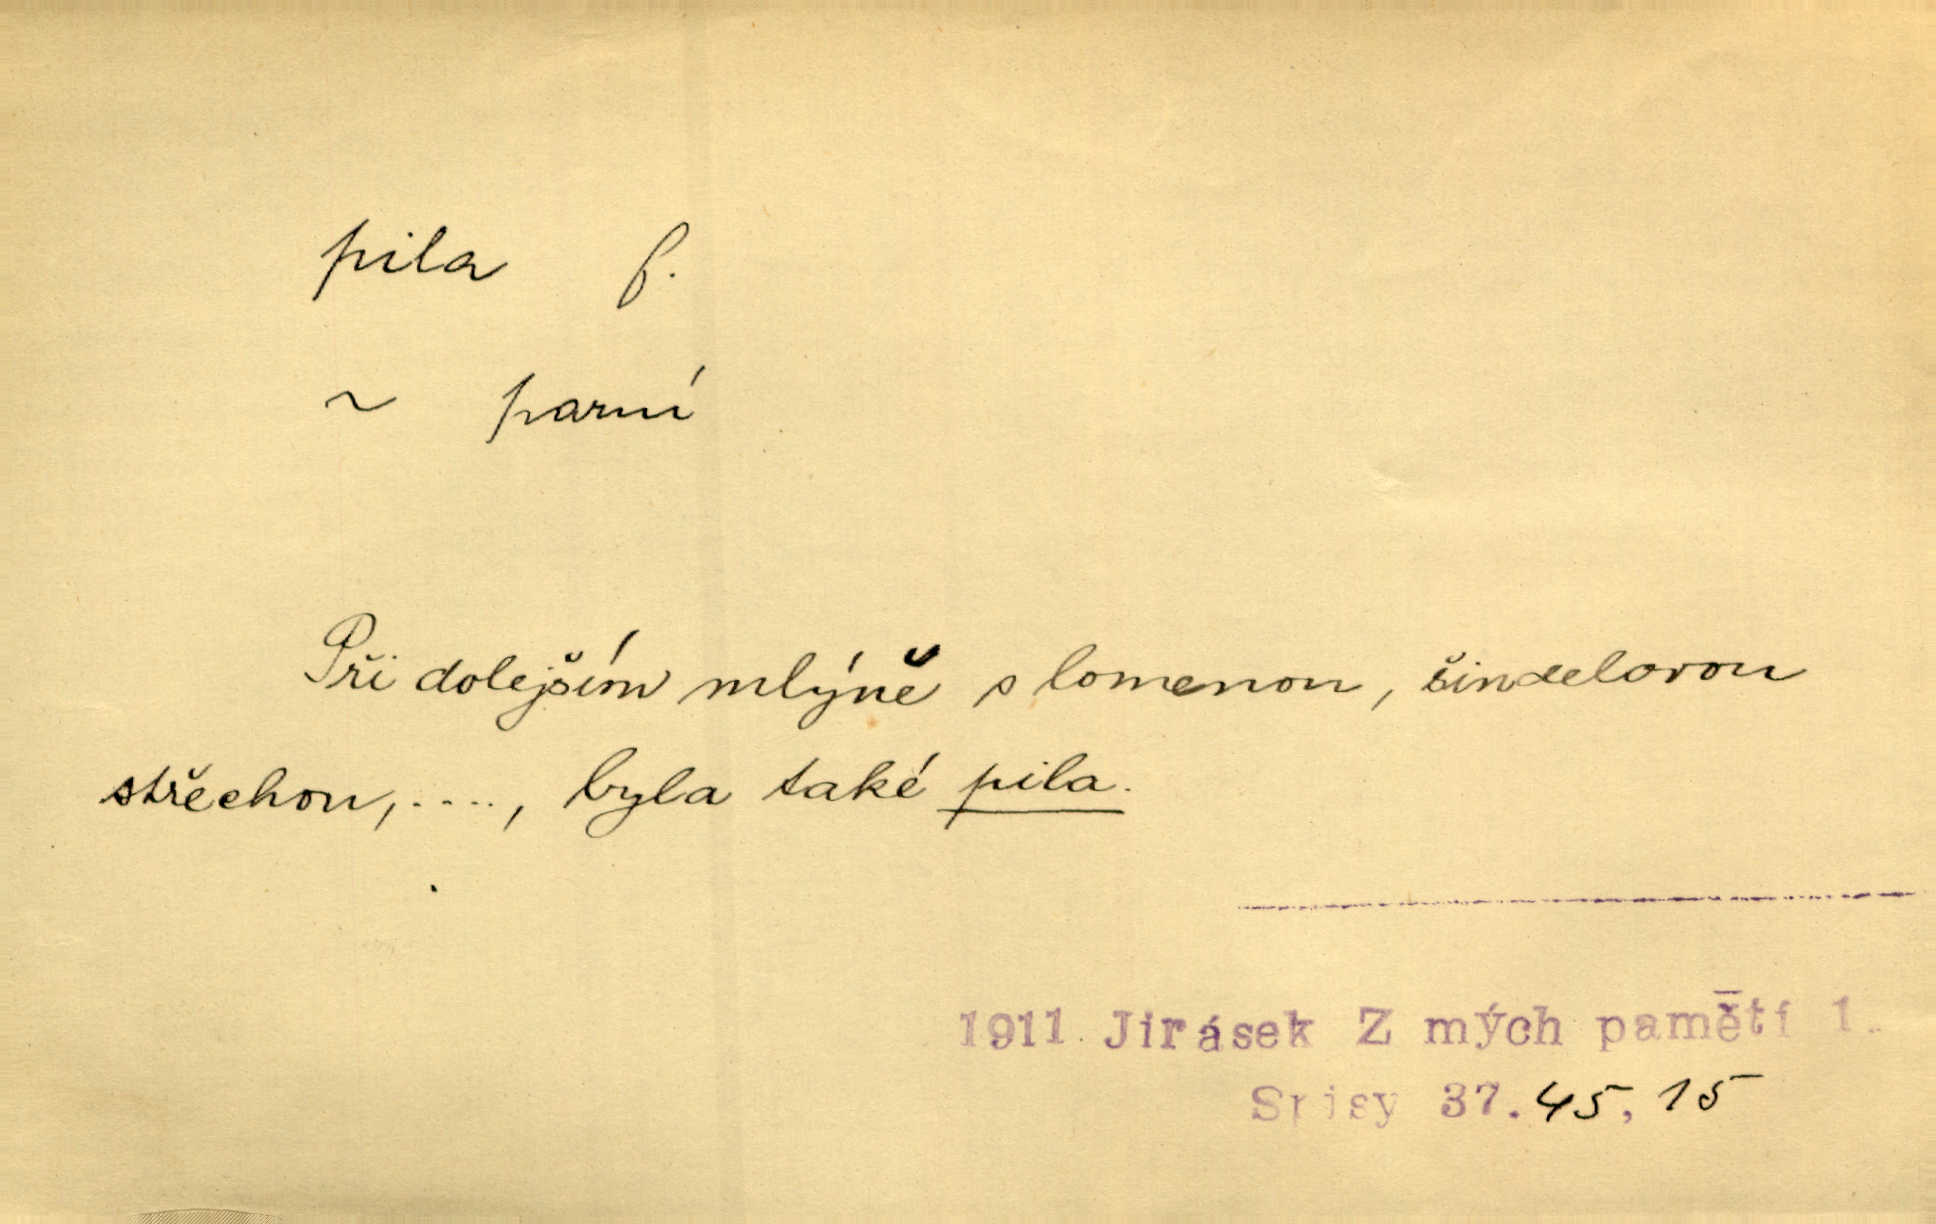 pila f.
~ parní
Při dolejším mlýně s lomenou, šindelovou
střechou, ...., byla také pila.
1911 Jirásek Z mých pamětí 1.
Spisy 37. 45, 15